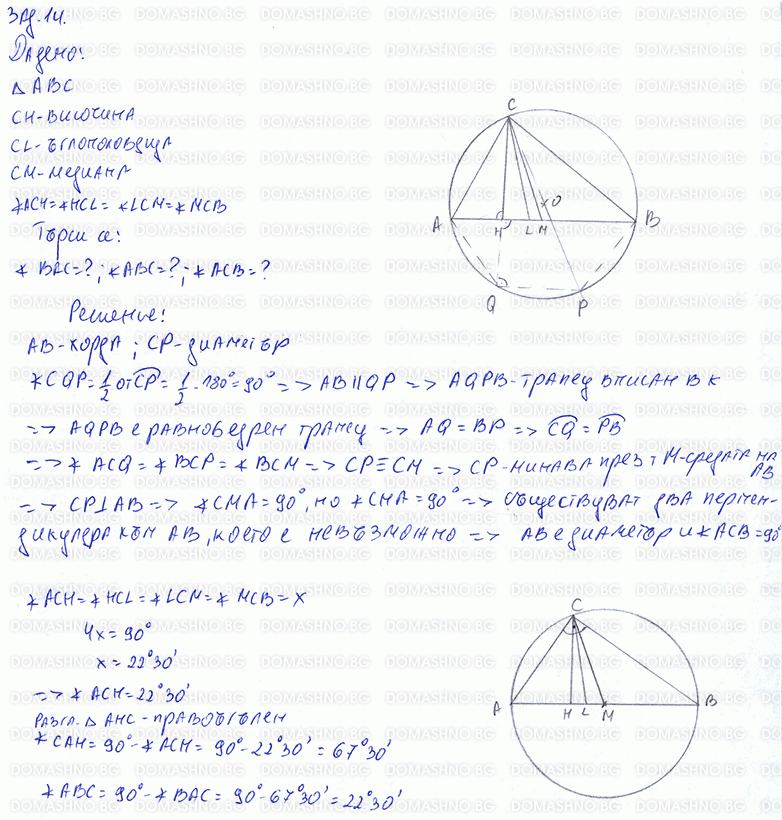 Зад.14.
Дадено:
△ ABC
CH - височина
CL - ъглополовяща
CM - медиана
∢ACH = ∢HCL = ∢LCM = ∢MCB
Търси се:
∢ BAC=? ; ∢ABC=? ; ∢ACB=?
Решение:
AB - хорда ; CP - диаметър
∢CQP = 1/2 от CP = 1/2 . 180° = 90° => AB || QP => AQPB - трапец вписан в k
=> AQPB е равнобедрен трапец => AQ = BP => CQ = PB
=> ∢ ACQ = ∢ BCP = ∢ BCM => CP ≡ CM => CP - минава през т M - средата на AB
=> CP⊥AB => ∢CMA = 90°, но ∢CHA = 90° => съществуват два перпен-
дикуляра към AB, което е невъзможно => AB е диаметър и ∢ACB = 90°
∢ACH = ∢HCL = ∢LCM = ∢ MCB = x
4x = 90°
x = 22°30'
=> ∢ ACH = 22°30'
Разгл. △ AHC - правоъгълен
∢CAH = 90° - ∢ACH = 90° - 22°30' = 67°30'
∢ABC = 90° - ∢BAC = 90° - 67°30' = 22°30'
C
O
A
H
L
M
B
Q
P
C
A
H
L
M
B
DOMASHNO.BG